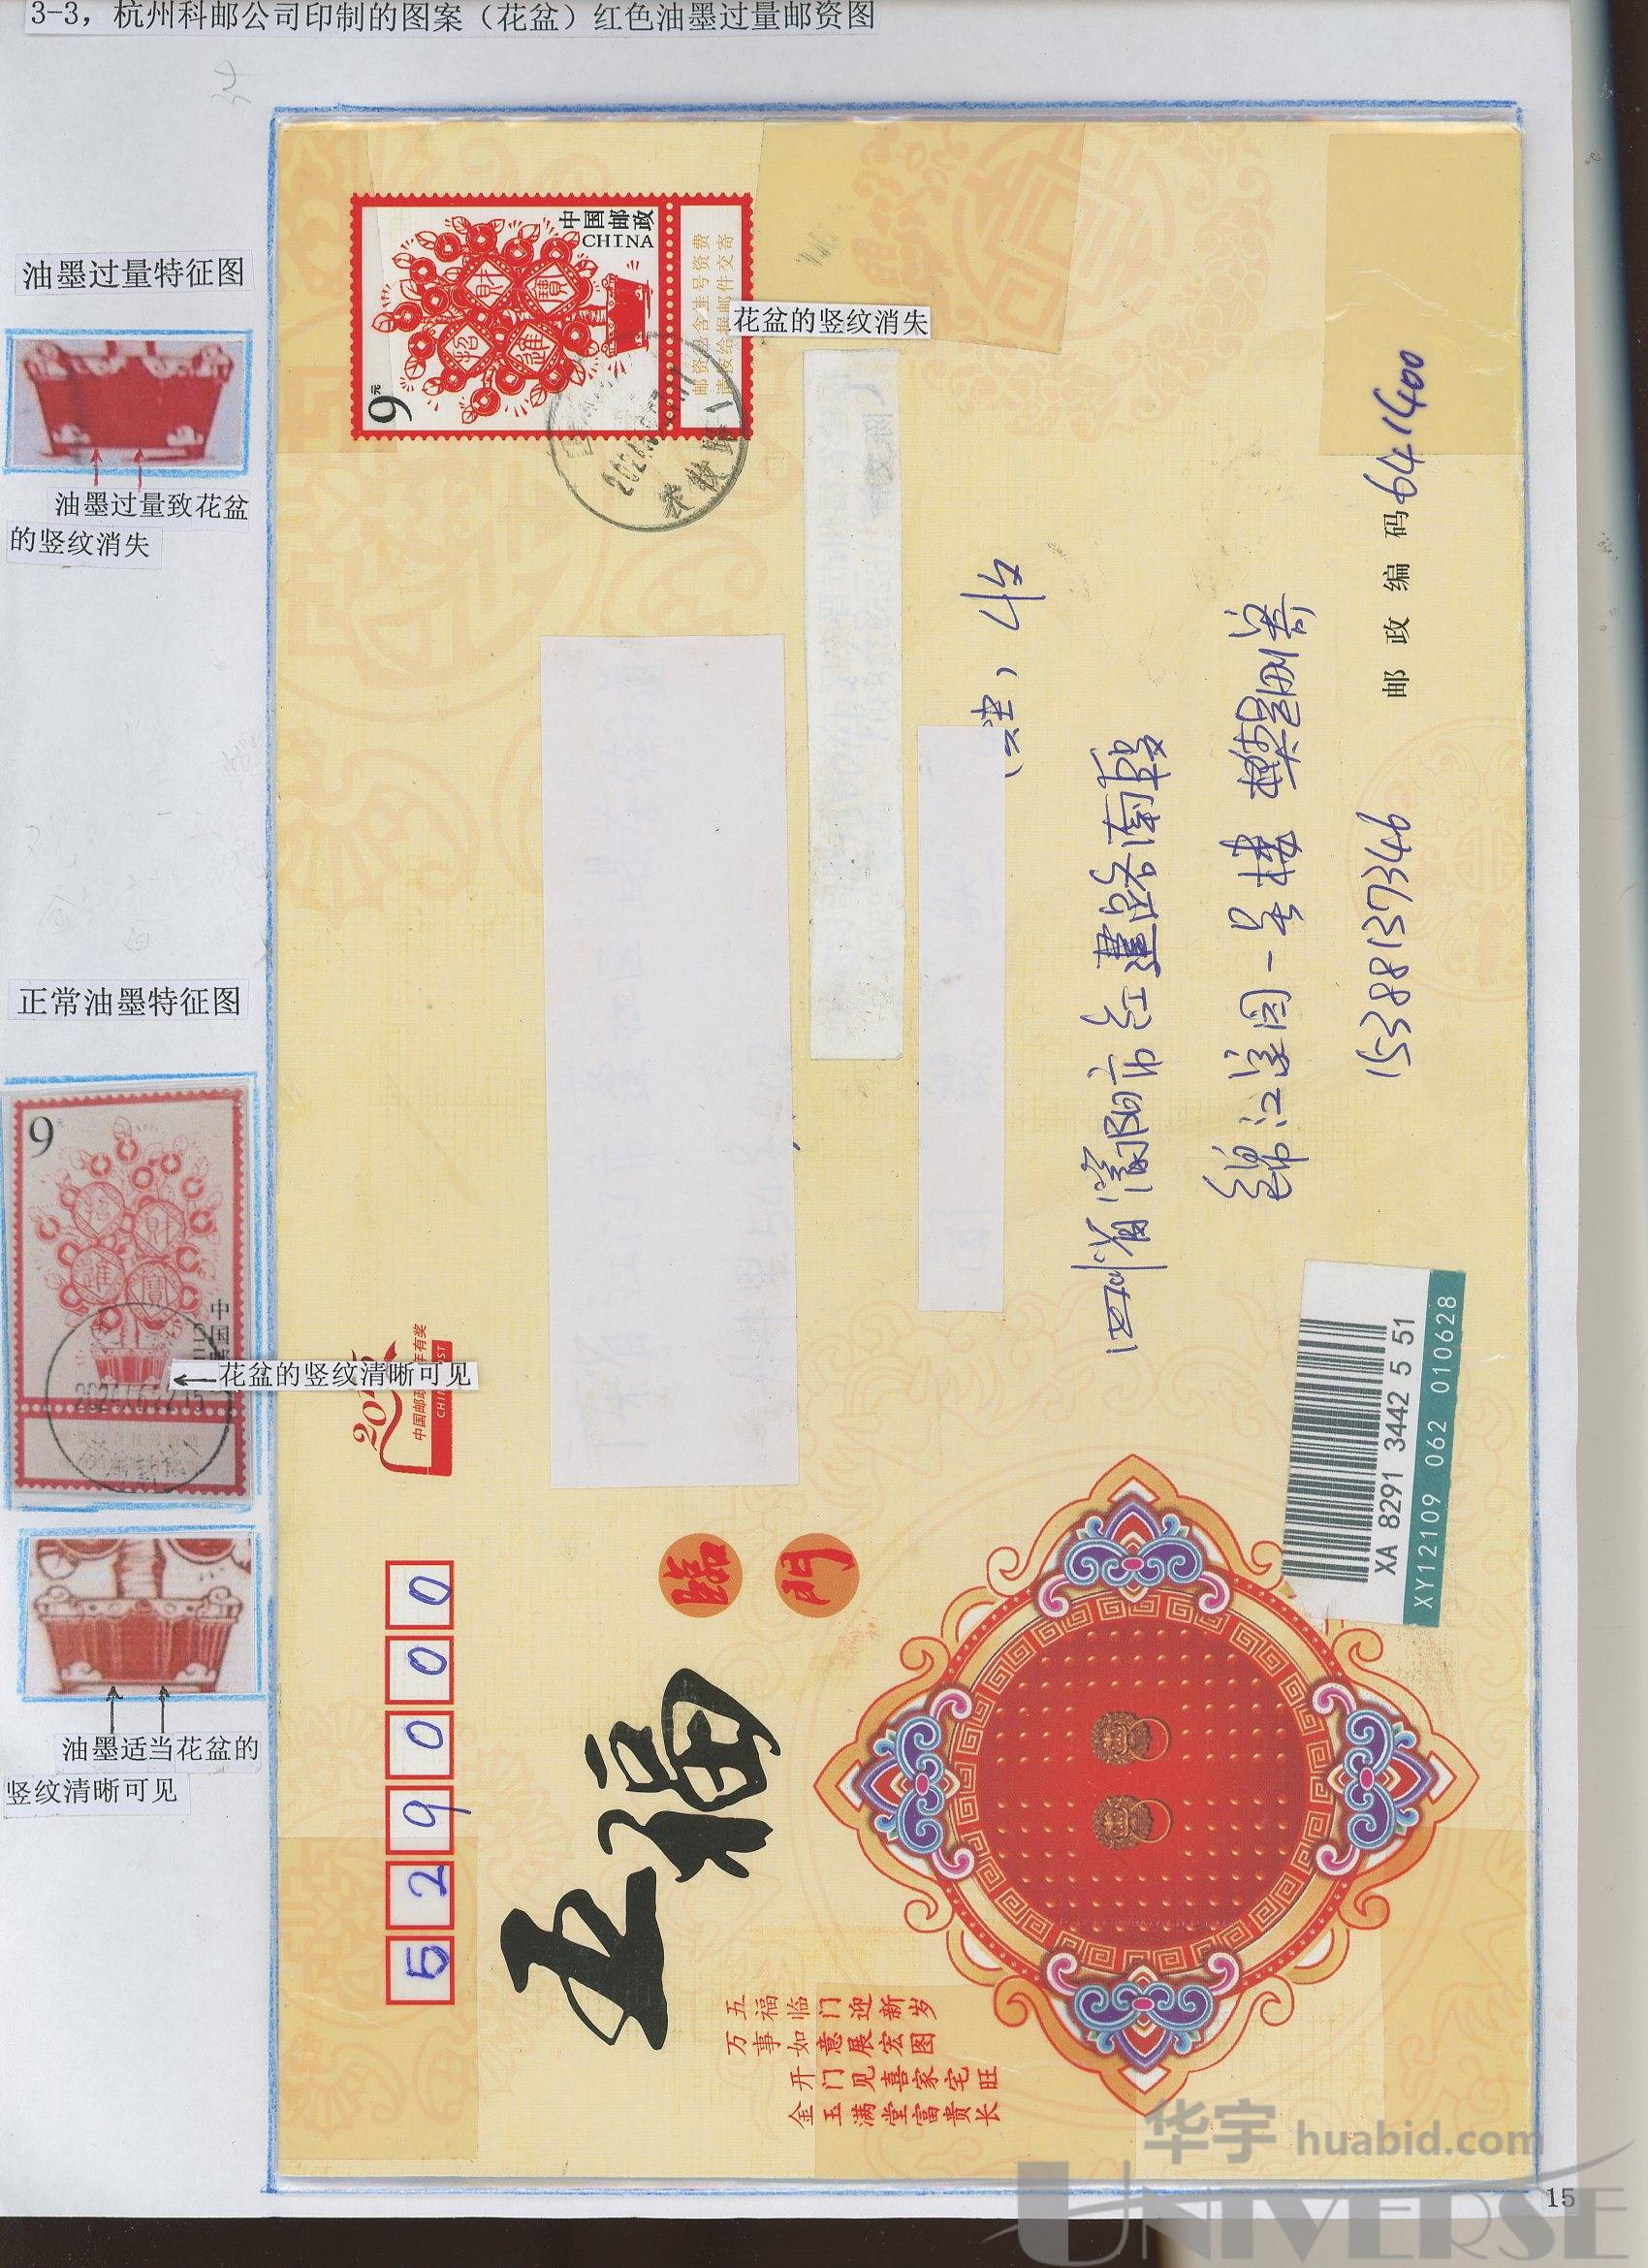 3-3，杭州科邮公司印制的图案（花盆）红色油墨过量邮资图
油墨过量特征图
油墨过量致花盆
的竖纹消失
正常油墨特征图
9
招
财
進
寶
中国
花盆的竖纹清晰可见
油墨适当花盆的
竖纹清晰可见
529000
9元
招
財
進
寶
中国邮政
CHINA
邮资融含挂号资费
请按给据邮件交寄
花盆的竖纹消失
五福
臨
門
五福临门迎新岁
万事如意展宏图
开门见喜家宅旺
金玉满堂富贵长
四川省简阳市红建路南段
锦江溪园一号楼
15388137346
邮政编码641400
XA 8291 3442 5 51
XY12109 062 010628
华宇 huabid.com
UNIVERSE
15